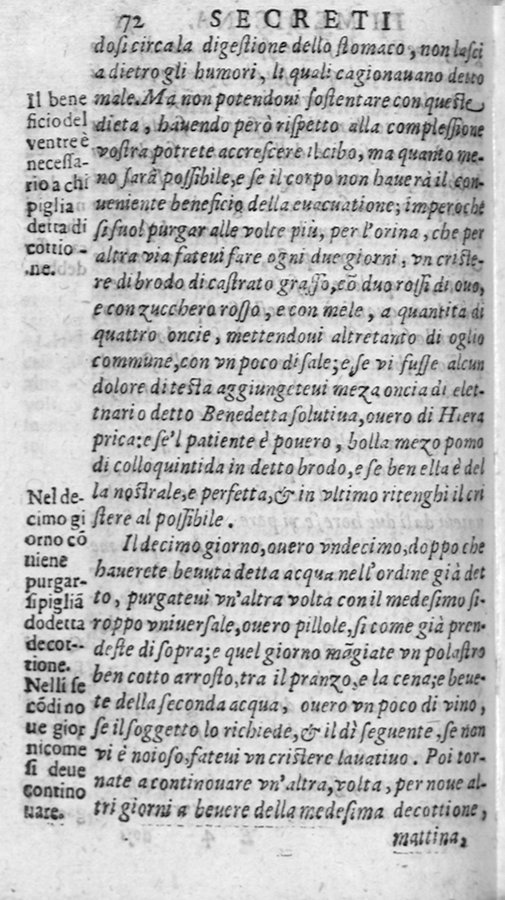 72 SECRETI
dosi circa la digestione dello stomaco, non lasci
a dietro gli humori, li quali cagionauano detto
male. Ma non potendoui sostentare con queste
dieta, hauendo però rispetto alla complessione
vostra potrete accrescere il cibo, ma quanto me-
no sarà possibile, e se il corpo non hauerà il con-
ueniente beneficio della euacuatione; imperoche
si suol purgar alle volte più, per l'orina, che per
altra via fateui fare ogni due giorni, vn cristie-
re di brodo di castrato grasso, cõ duo rossi di ouo,
e con zucchero rosso, e con mele, a quantita di
quattro oncie, mettendoui altretanto di oglio
commune, con vn poco di sale; e se vi fusse alcun
dolore di testa aggiungeteui meza oncia di elet-
tnario detto Benedetta solutiua, ouero di Hiera
prica: e se'l patiente è pouero, bolla mezo pomo
di colloquintida in detto brodo, e se ben ella è del
la nostrale, e perfetta, & in vltimo ritenghi il cri
stere al possibile.
Il decimo giorno, ouero vndecimo, doppo che
hauerete beuuta detta acqua nell'ordine già det
to, purgateui vn'altra volta con il medesimo si-
roppo vniuersale, ouero pillole, si come già pren-
deste di sopra; e quel giorno mãgiate vn polastro
ben cotto arrosto, tra il pranzo, e la cena; e beue-
te della seconda acqua, ouero vn poco di vino,
se il soggetto lo richiede, & il dì seguente, se non
vi è noioso, fateui vn cristere lauatiuo. Poi tor-
nate a continouare vn'altra, volta, per noue al-
tri giorni a beuere della medesima decottione,
mattina,
Il bene
ficio del
ventre è
necessa-
rio a chi
piglia
detta di
cottio-
ne.
Nel de-
cimo gi
orno cõ
uiene
purgar-
si pigliã
do detta
decot-
tione.
Nelli se
cõdi no
ue gior
ni come
si deue
contino
uare.